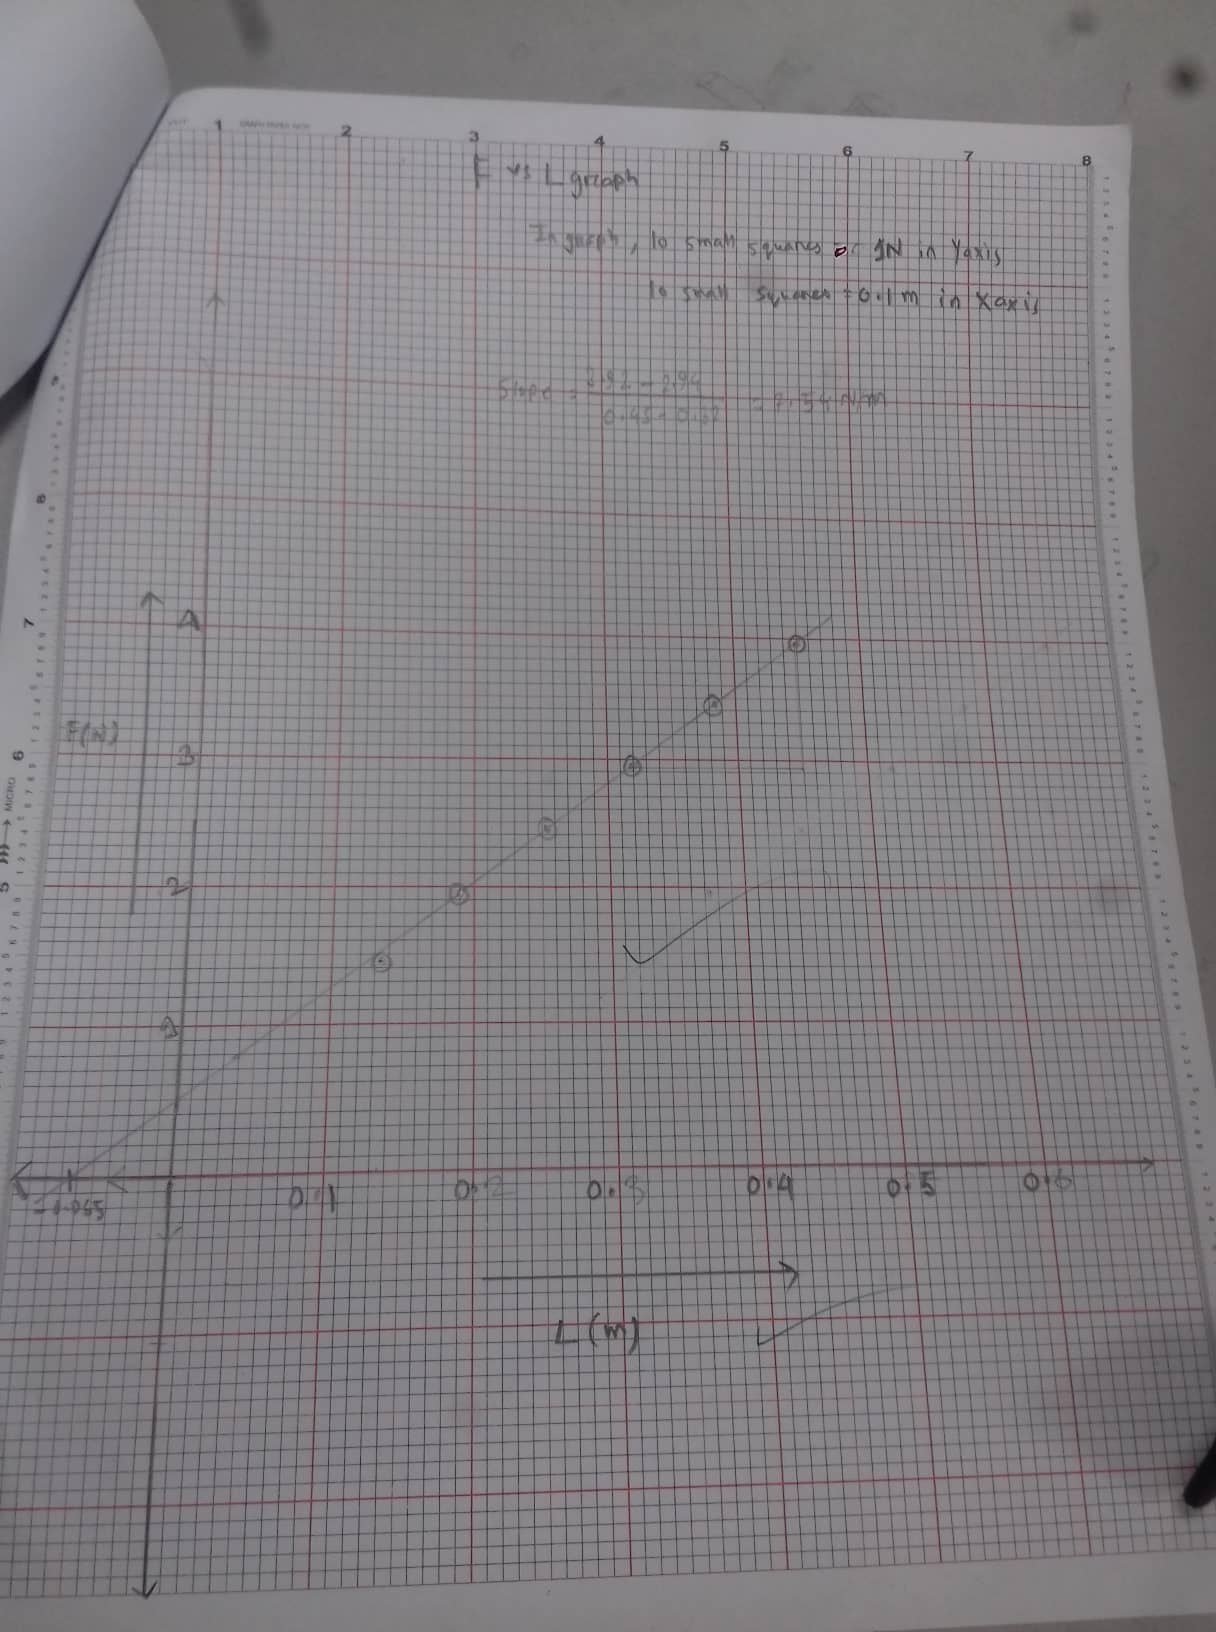 1 2 3 4 5 6 7 8
F vs L graph
In graph, 10 small squares = 1N in Yaxis
10 small squares = 0.1m in Xaxis
Slope = 3.92 - 2.94 / 0.45 - 0.32 = 7.54 N/m
8
7
4
F(N)
6
3
MICRO
5
2
1
-0.065 0.1 0.2 0.3 0.4 0.5 0.6
L (m)